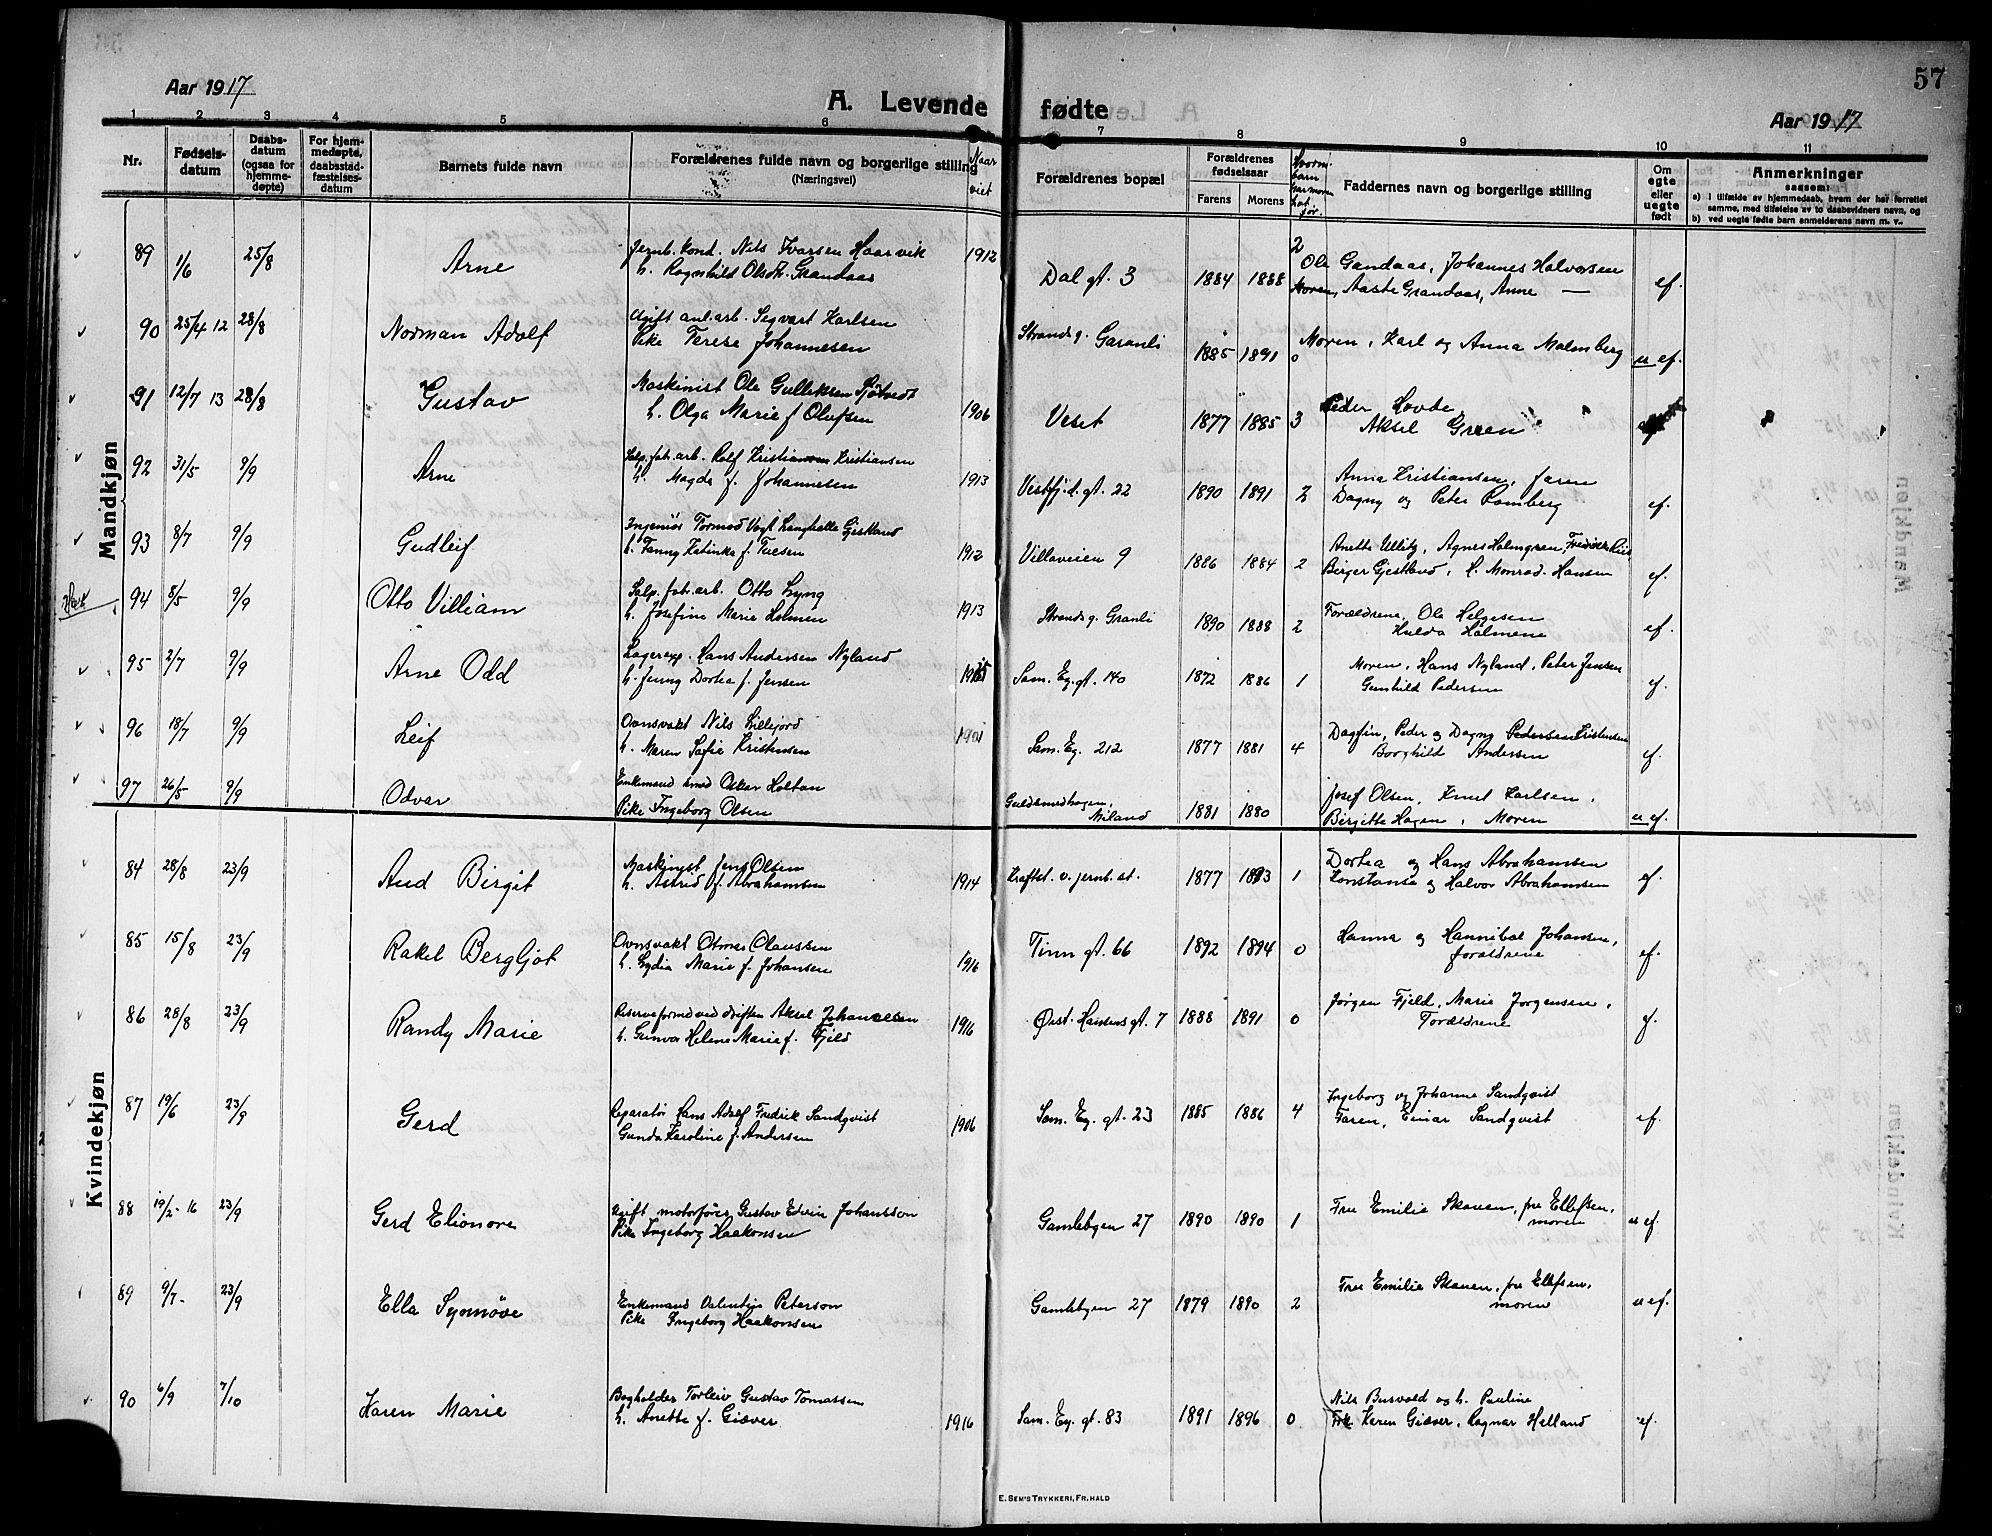 57
Aar 1917
A. Levende fødte
Aar 1917
1 2 3 4 5 6 7 8 9 10 11
Nr.
Fødsels-datum
Daabs-datum (ogsaa for hjemme-døpte)
For hjem-medøpte, daabsstad-fæstelses-datum
Barnets fulde navn
Forældrenes fulde navn og borgerlige stilling
(Næringsvei)
Naar viet
Forældrenes bopæl
Forældrenes fødselsaar
Farens Morens
Faddernes navn og borgerlige stilling
Om egte eller uegte født
Anmerkninger
saasom:
a) i tilfælde av hjemmedaab, hvem der har forrettet samme, med tilføielse av to daabsvidners navn, og
b) ved uegte fødte barn anmelderens navn m. v.,
Mandkjøn
89 1/6 25/8 Arne Jernb. kond. Nils Ivarsen Haarvik 1912 Dal gt. 3 1884 1888 2 Ole Gandaas, Johannes Halvorsen ef.
h. Ragnhild Olsdt. Grandaas Moren, Aaste Grandaas, Anne —
90 25/4 12 28/8 Norman Adolf Ugift anl.arb. Segvart Karlsen Strandg. Garanli 1885 1891 0 Moren, Karl og Anna Malmberg u ef.
Pike Terese Johannesen
91 12/7 13 28/8 Gustav Maskinist Ole Gulleksen Sjøtvedt 1906 Veset 1877 1885 3 Peder Hovde
h. Olga Marie f Olufsen Aksel Green
92 31/5 9/9 Arne Salp. fab. arb. Rolf Kristiansen Kristiansen 1913 Vestfj.d. gt. 22 1890 1891 2 Anna Kristiansen, faren ef.
h. Magda f. Johannesen Dagny og Peter Romberg
93 8/7 9/9 Gudleif Ingeniør Tormod Vogt Langhelle Gjestland 1912 Villaveien 9 1886 1884 2 Anette Ullitz, Agnes Holmgren, ef.
h. Fanny Katinka f. Tuesen Birger Gjestland, H. Monrad-Hansen
94 8/5 9/9 Otto Villiam Salp. fab. arb. Otto Lyng 1913 Strandg. Granli 1890 1888 2 Forældrene, Ole Helgesen ef.
h. Josefine Marie Holmen Hulda Holmene
95 2/7 9/9 Arne Odd Lagerexp. Hans Andersen Nyland 1915 Sam. Eg. gt. 140 1872 1886 1 Moren, Hans Nyland, Peter Jensen ef.
h. Jenny Dortea f. Jensen Gunhild Pedersen
96 18/7 9/9 Leif Ovnsvakt Nils Lillejord 1901 Sam. Eg. 212 1877 1881 4 Dagfin, Peder og Dagny Pedersen Kristensen ef.
h. Maren Sofie Kristensen Borghild Andersen
97 26/5 9/9 Odvar Enkemand smed Oskar Holtan Guldsmedhagen, Miland 1881 1880 Josef Olsen, Knut Karlsen, u ef.
Pike Ingeborg Olsen Birgitte Hagen, Moren
Kvindekjøn
84 28/8 23/9 Aud Birgit Maskinist Jens Olsen 1914 Kraftst. v. jernb. st. 1877 1893 1 Dortea og Hans Abrahamsen ef.
h. Astrid f. Abrahamsen Konstanse og Halvor Abrahamsen
85 15/8 23/9 Rakel Bergljot Ovnsvakt Otmar Claussen 1916 Tinn gt. 66 1892 1894 0 Hanna og Hannibal Johansen, ef.
h. Lydia Marie f. Johansen forældrene
86 28/8 23/9 Randy Marie Reserveformd ved driften Aksel Johannessen 1916 Ørst. Hansens gt. 7 1888 1891 0 Jørgen Fjeld, Marie Jørgensen, ef.
h. Gunvor Helene Marie f. Fjeld Forældrene
87 19/6 23/9 Gerd Reparatør Hans Adolf Fredrik Sandqvist 1906 Sam. Eg. gt. 23 1885 1886 4 Ingeborg og Johanne Sandqvist ef.
Gunda Karoline f. Andersen Faren, Einar Sandqvist
88 19/2-16 23/9 Gerd Elionore Gift motorfører Gustav Edvin Johansson Gamlebyen 27 1890 1890 1 Fru Emilie Skauen, fru Ellefsen, u ef.
Pike Ingeborg Haakonsen moren
89 9/7- 23/9 Ella Synnøve Enkemand Valentin Peterson Gamlebyen 27 1879 1890 2 Fru Emilie Skauen, fru Ellefsen, u ef.
Pike Ingeborg Haakonsen moren
90 6/9 7/10 Karen Marie Bogholder Torleiv Gustav Tomassen 1916 Sam. Eg. gt. 83 1891 1896 0 Nils Busvold og h. Pauline ef.
h. Anette f. Gisver Frk. Karen Gisver, Ragnar Helland
E. SEM'S TRYKKERI, FR.HALD